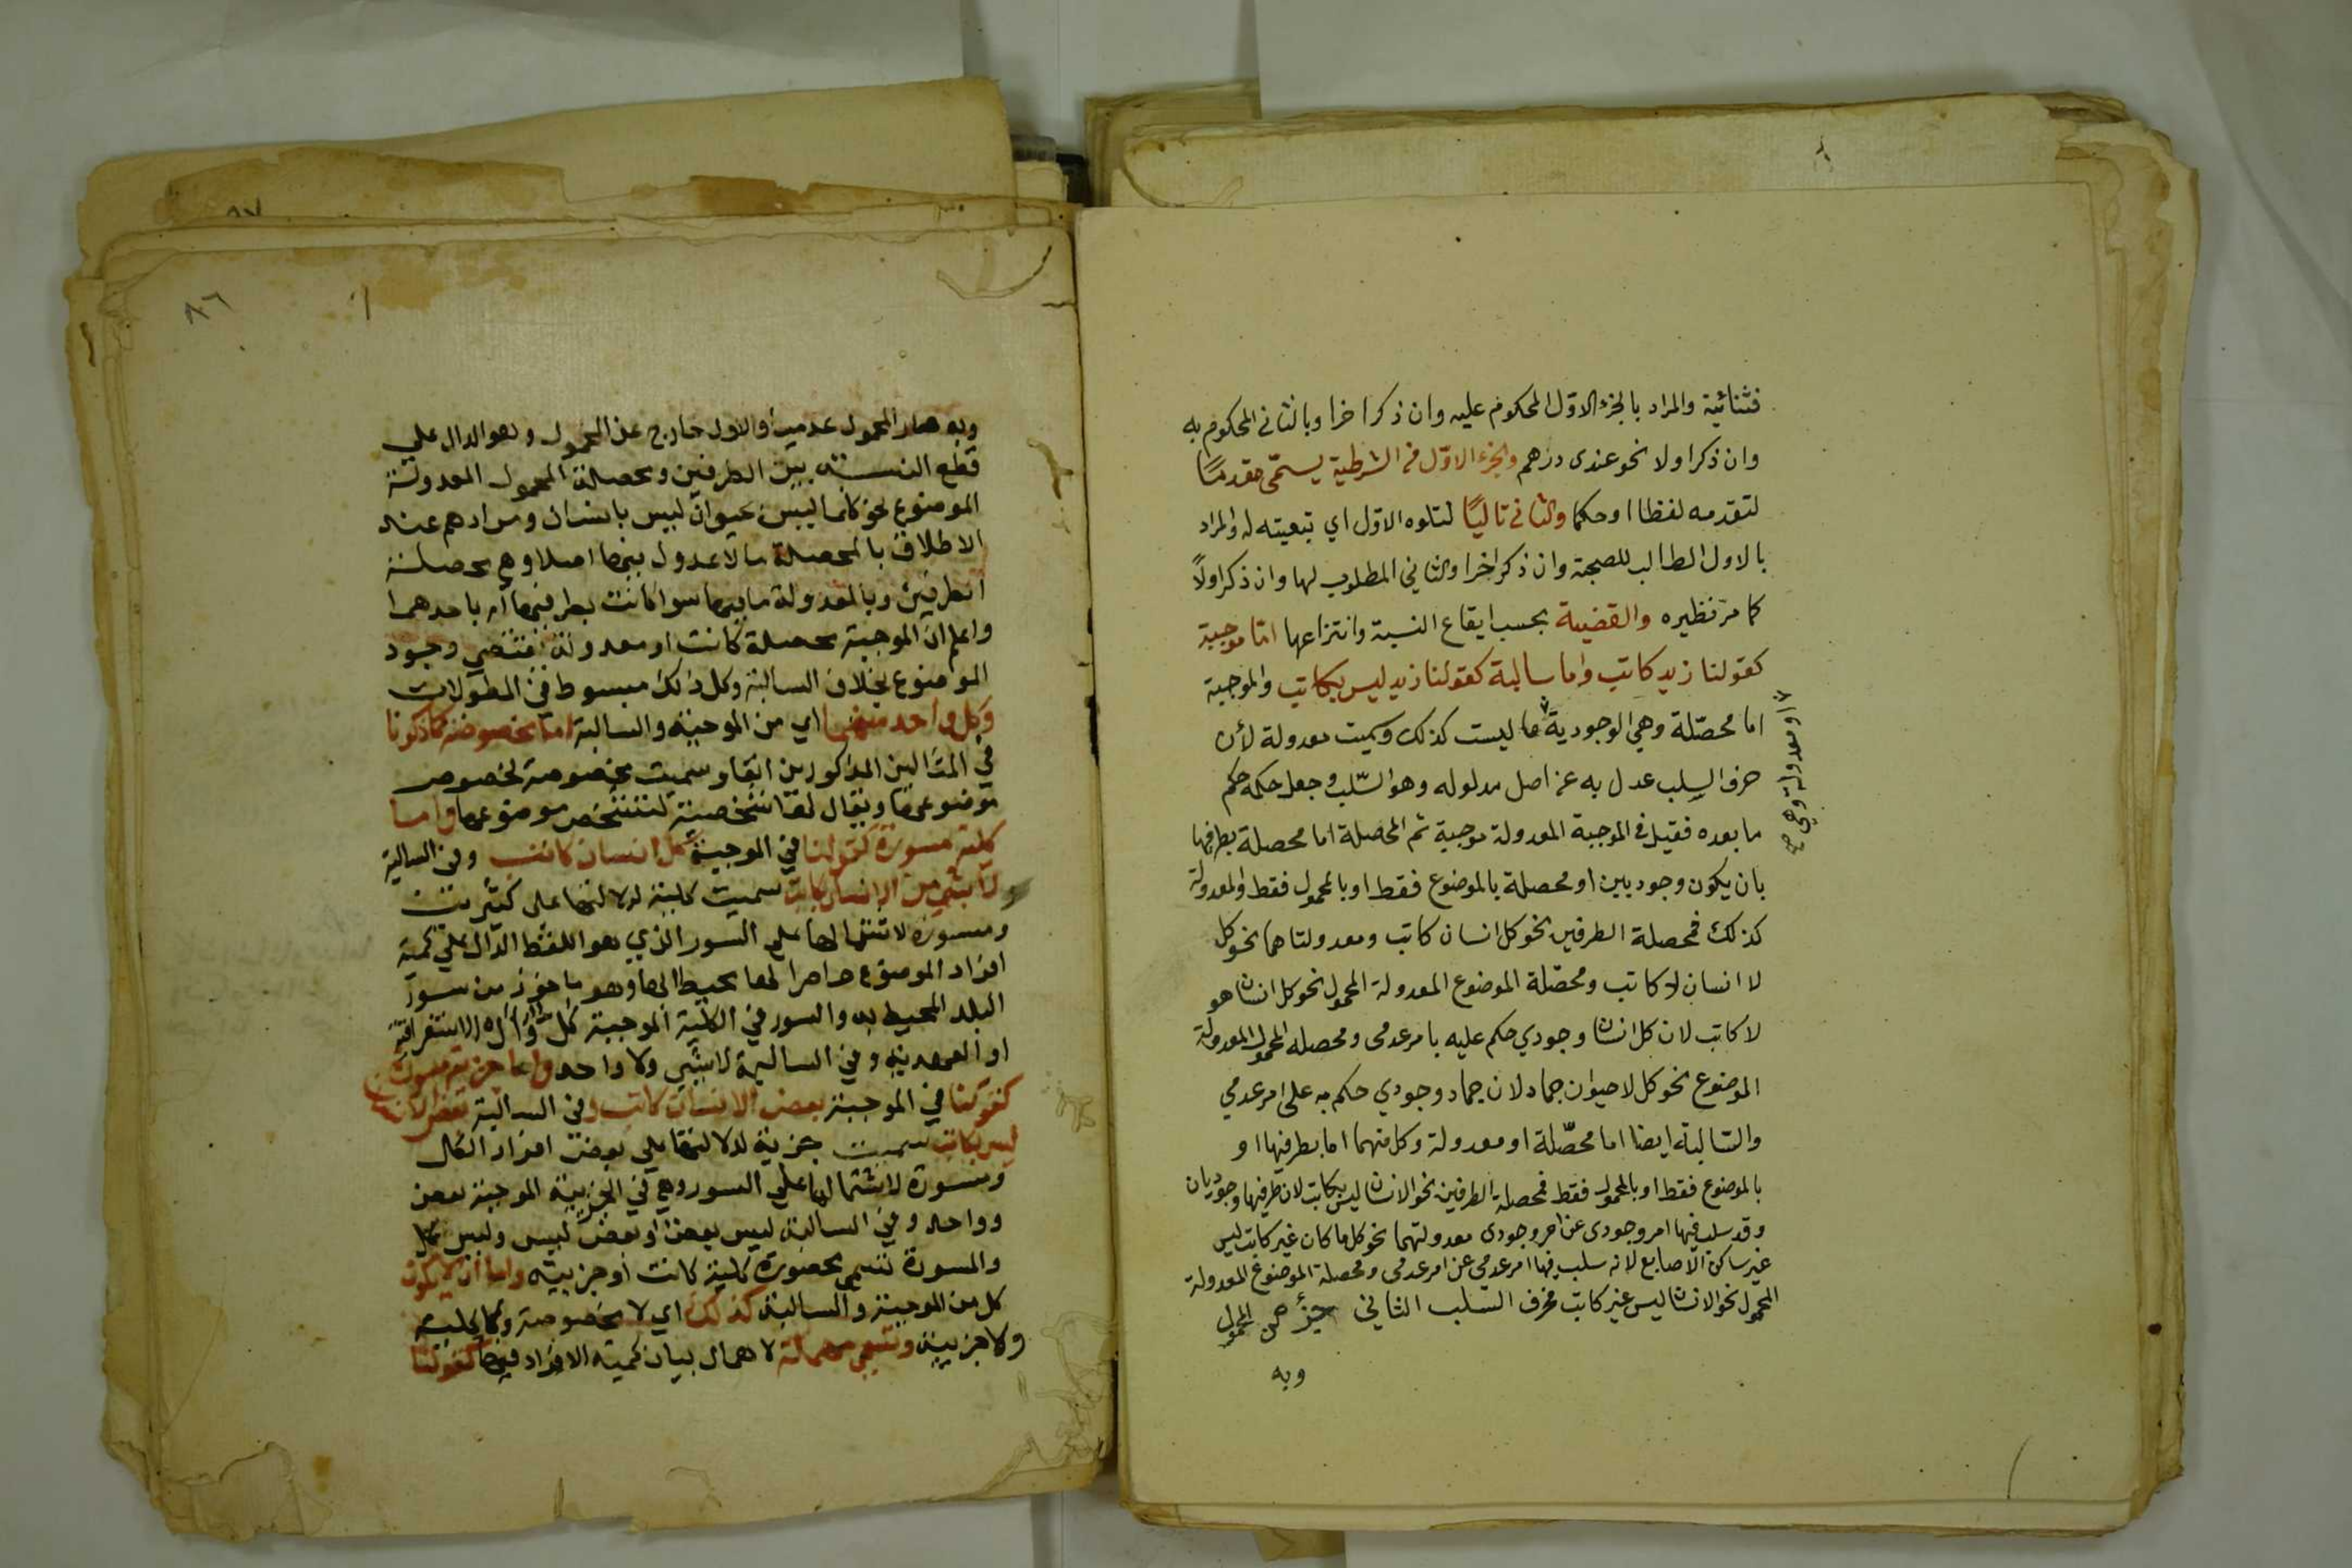 فثنائية والمراد بالجزء الاول المحكوم عليه وان ذكر اخرا وبالثاني المحكوم به
وان ذكر اولا نحو عندى درهم والجزء الاول من الشرطية يسمى مقدما
لتقدمه لفظا او حكما والثاني تاليا لتلوه الاول اي تبعيته له والمراد
بالاول الطالب للصحبة وان ذكر اخرا والثاني المطلوب لها وان ذكر اولا
كما مر نظيره والقضية بحسب ايقاع النسبة وانتزاعها اما موجبة
كقولنا زيد كاتب واما سالبة كقولنا زيد ليس بكاتب والموجبة
اما محصلة وهي الوجودية ما ليست كذلك وسميت معدولة لأن
او معدولة وهي صح
حرف السلب عدل به عن اصل مدلوله وهو السلب وجعل حكمه حكم
ما بعده فقيل في الموجبة المعدولة موجبة ثم المحصلة اما محصلة بطرفيها
بان يكون وجوديين او محصلة بالموضوع فقط او بالمحمول فقط والمعدولة
كذلك فمحصلة الطرفين نحو كل انسان كاتب ومعدولتاهما نحو كل
لا انسان لا كاتب ومحصلة الموضوع المعدولة المحمول نحو كل انسان هو
لا كاتب لان كل انسان وجودي حكم عليه بامر عدمى ومحصله المحمول المعدولة
الموضوع نحو كل لا حيوان جماد لان جماد وجودي حكم به على امر عدمي
والسالبة ايضا اما محصلة او معدولة وكل منهما اما بطرفيها او
بالموضوع فقط او بالمحمول فقط فمحصلة الطرفين نحو الانسان ليس بكاتب لان طرفيها وجوديان
وقد سلب فيها امر وجودى عن امر وجودى معدولتهما نحو كل ما كان غير كاتب ليس
غير ساكن الاصابع لانه سلب فيها امر عدمي عن امر عدمى ومحصلة الموضوع المعدولة
المحمول نحو الانسان ليس غير كاتب فحرف السلب الثاني جزؤ من المحمول
وبه
٨٦
وبه صار المحمول عدميا والاول خارج عن المحمول وهو الدال علي
قطع النسبة بين الطرفين ومحصلة المحمول المعدولة
الموضوع نحو كلما ليس بحيوان ليس بانسان ومرادهم عند
الاطلاق بالمحصلة ما لا عدول فيها اصلا وهي محصلة
الطرفين وبالمعدولة ما فيها سوا كانت بطرفيها ام باحدهما
واعلم ان الموجبة محصلة كانت او معدولة تقتضي وجود
الموضوع بخلاف السالبة وكل ذالك مبسوط في المطولات
وكل واحد منهما اي من الموجبة والسالبة اما مخصوصة كما ذكرنا
في المثالين المذكورين انفا وسميت مخصوصة لخصوص
موضوعها ويقال لها شخصية لتشخص موضوعها واما
كلية مسورة كقولنا في الموجبة كل انسان كاتب وفي السالبة
لا شي من الانسان بكاتب سميت كلية لدلالتها على كثيرين
ومسورة لاشتمالها على السور الذي هو اللفظ الدال علي كمية
افراد الموضوع حاصرا لها محيط بها وهو ماخوذ من سور
البلد المحيط به والسور في الكلية الموجبة كل وال الاستغراقية
او العهدية وفي السالبة لا شي ولا واحد واما جزئية مسورة
كقولنا في الموجبة بعض الانسان كاتب وفي السالبة بعض الانسان
ليس بكاتب سميت جزية لدلالتها على بعض افراد الكل
ومسورة لاشتمالها على السور وهي في الجزيية الموجبة بعض
وواحد وفي السالبة ليس بعض او بعض ليس وليس كل
والمسورة تسمى محصورة كلية كانت او جزيية واما ان لا يكون
كل من الموجبة والسالبة كذلك اي لا مخصوصة ولا كلية
ولا جزيية وتسمى مهملة لاهمال بيان كمية الافراد فيها كقولنا